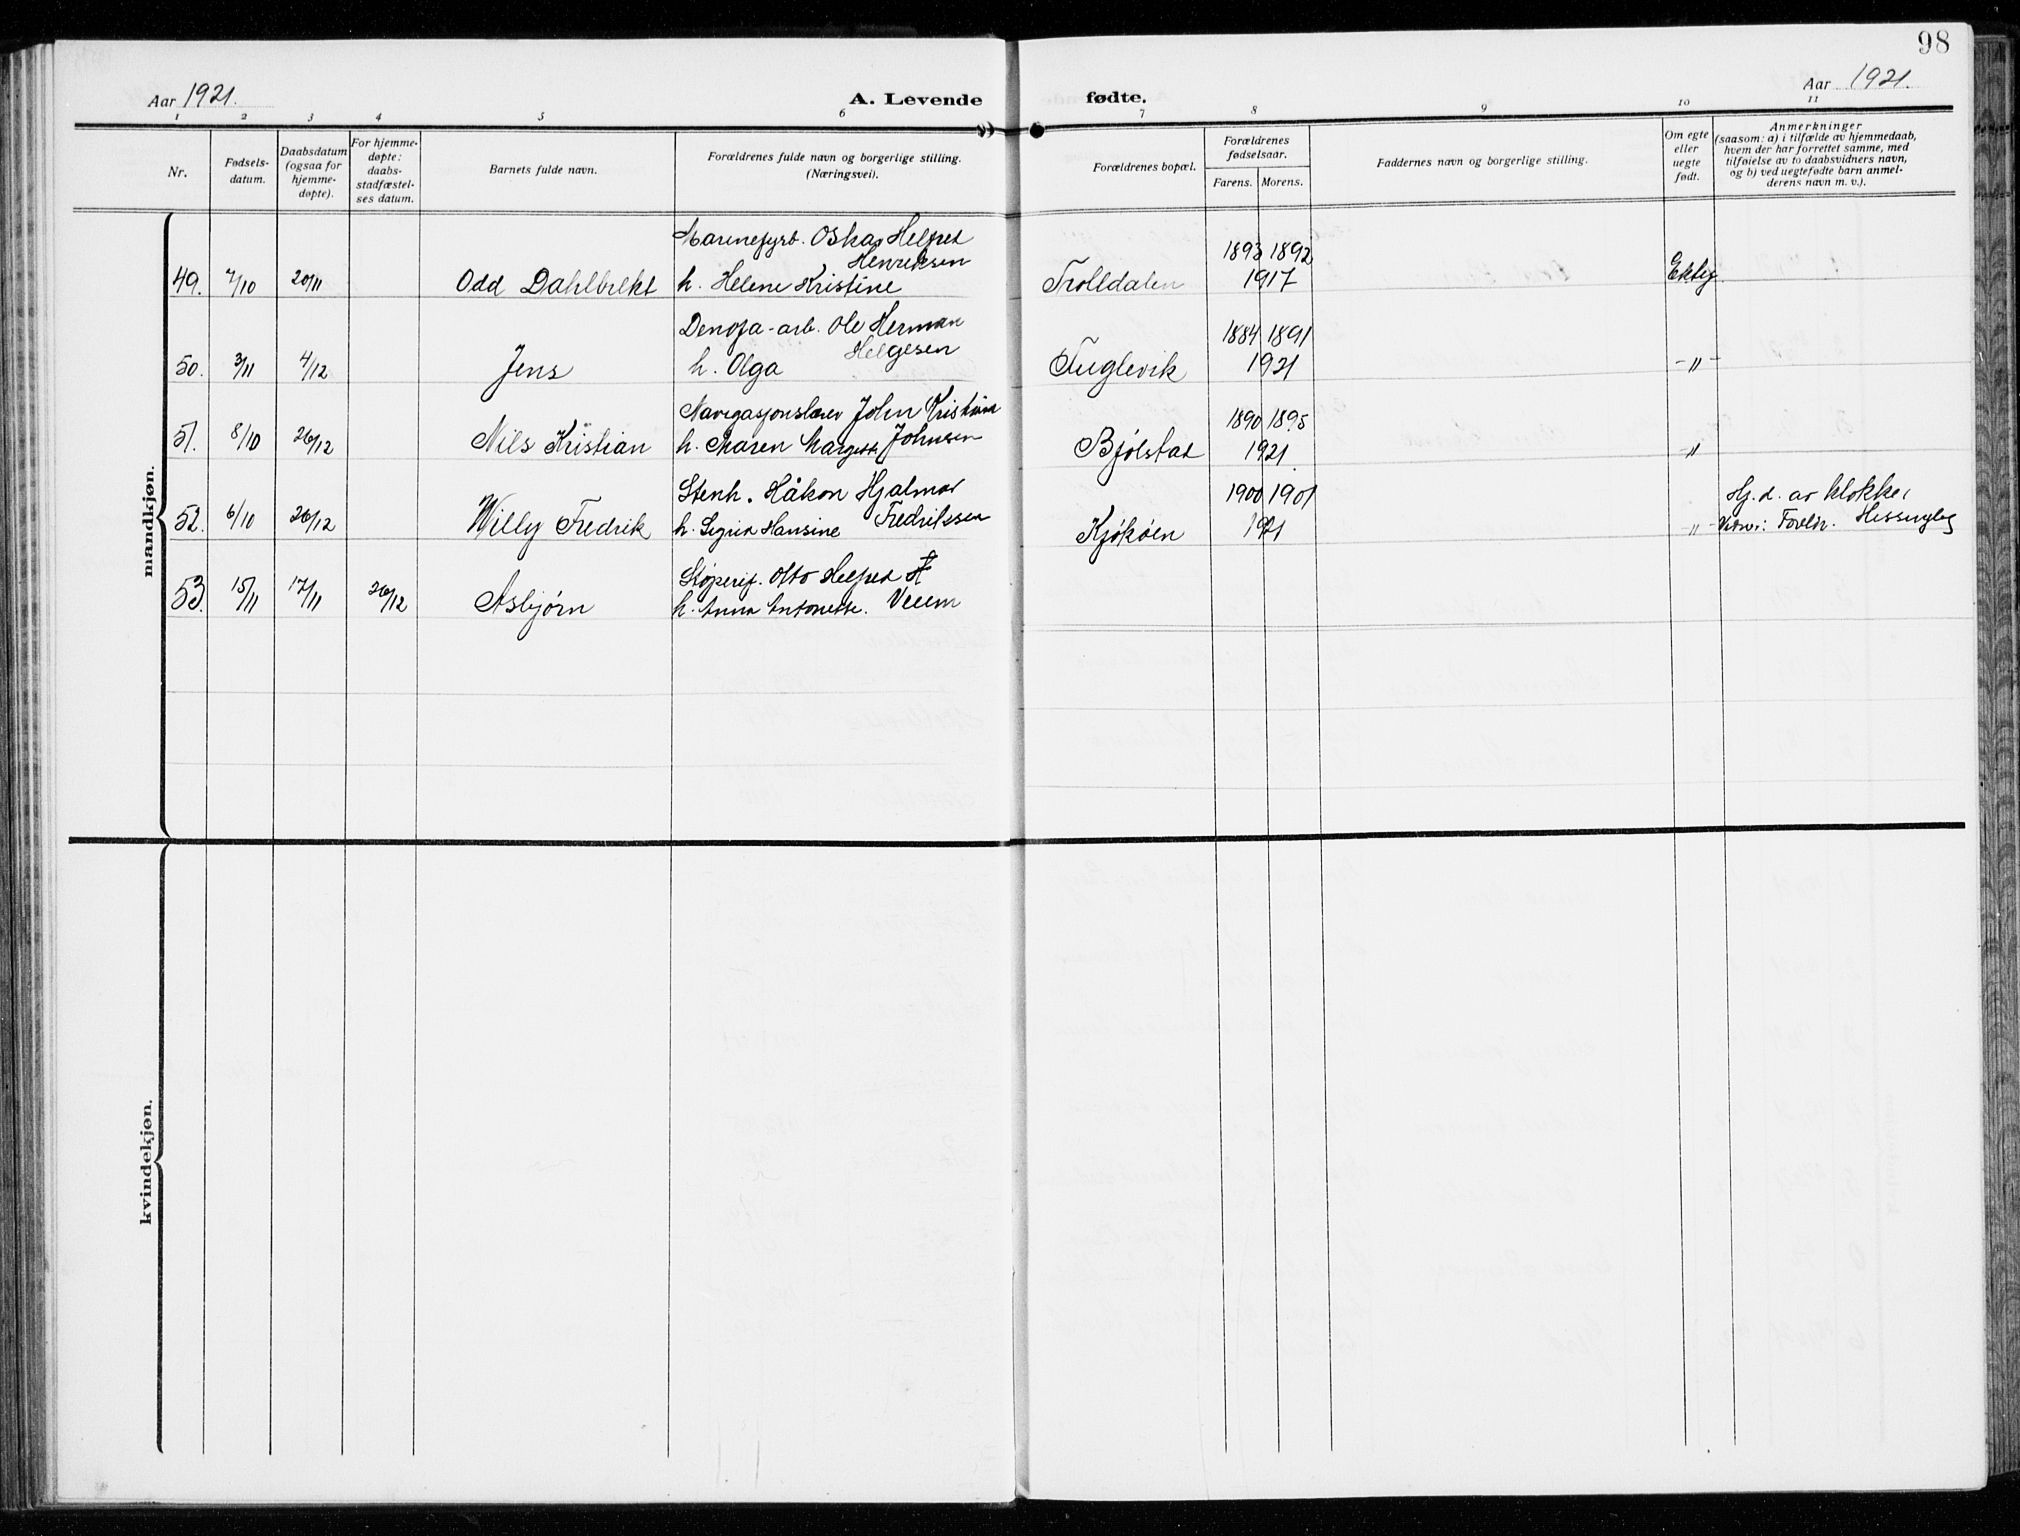 98
Aar 1921.
A. Levende fødte.
Aar 1921.
1 2 3 4 5 6 7 8 9 10 11
Nr.
Fødsels-
datum.
Daabsdatum
(ogsaa for
hjemme-
døpte).
For hjemme-
døpte:
daabs-
stadfæstel-
ses datum.
Barnets fulde navn.
Forældrenes fulde navn og borgerlige stilling.
(Næringsvei).
Forældrenes bopæl.
Forældrenes
fødselsaar.
Farens. Morens.
Faddernes navn og borgerlige stilling.
Om egte
eller
uegte
født.
Anmerkninger
(saasom: a) i tilfælde av hjemmedaab,
hvem der har forrettet samme, med
tilføielse av to daabsvidners navn,
og b) ved uegtefødte barn anmel-
derens navn m. v.).
mandkjøn.
Marinefyrb. Oskar Helfred
Henriksen
1893 1892
49. 7/10 20/11 Odd Dahlbrekt h. Helene Kristine Trolldalen 1917 Ektef.
Denofa-arb. Ole Herman
Helgesen
1884 1891
50. 3/11 4/12 Jens h. Olga Fuglevik 1921 -"-
Navigasjonslærer John Kristian
Johnsen
1890 1895
51. 8/10 26/12 Nils Kristian h. Maren Margethe Bjølstad 1921 "
Stenh. Håkon Hjalmar
Fredrikssen
1900 1901
Hj. d. av klokker
Hessungleg
52. 6/10 26/12 Willy Fredrik h. Sigrid Hansine Kjøkøen 1921 " Vidner: Foreldr.
Otto Helfred H
Veum
53. 15/11 17/11 26/12 Asbjørn h. Anna Antonette.
kvindekjøn.